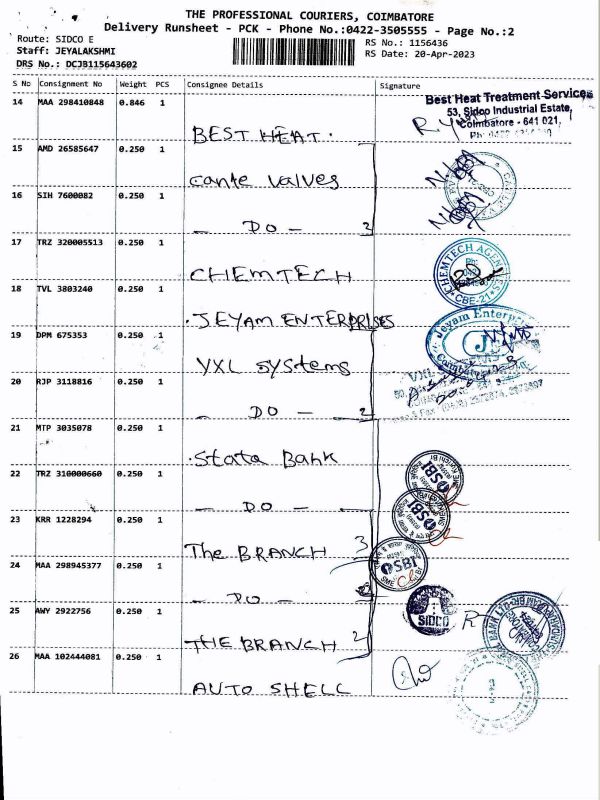 THE PROFESSIONAL COURIERS, COIMBATORE
Delivery Runsheet - PCK - Phone No.:0422-3505555 - Page No.:2
Route: SIDCO E
RS No.: 1156436
Staff: JEYALAKSHMI
RS Date: 20-Apr-2023
DRS No.: DCJB115643602
S No Consignment No Weight PCS Consignee Details Signature
14 MAA 298410848 0.846 1
Best Heat Treatment Services
53, Sidco Industrial Estate,
Coimbatore - 641 021,
BEST HEAT.
15 AMD 26585647 0.250 1
cante valves
16 SIH 7600082 0.250 1
- DO - 2
17 TRZ 320005513 0.250 1
CHEMTECH AGEN
CBE-21
CHEMTECH
18 TVL 3803240 0.250 1
Jeyam Enterpri
JEYAM ENTERPRISES
19 DPM 675353 0.250 1
VXL Systems
VXL
20 RJP 3118816 0.250 1
- DO - 2
21 MTP 3035078 0.250 1
State Bank
SBI
22 TRZ 310000660 0.250 1
- DO -
SBI
23 KRR 1228294 0.250 1
The BRANCH 3
SBI
24 MAA 298945377 0.250 1
- DO -
25 AWY 2922756 0.250 1
SIDCO
THE BRANCH 2
26 MAA 102444081 0.250 1
AUTO SHELL